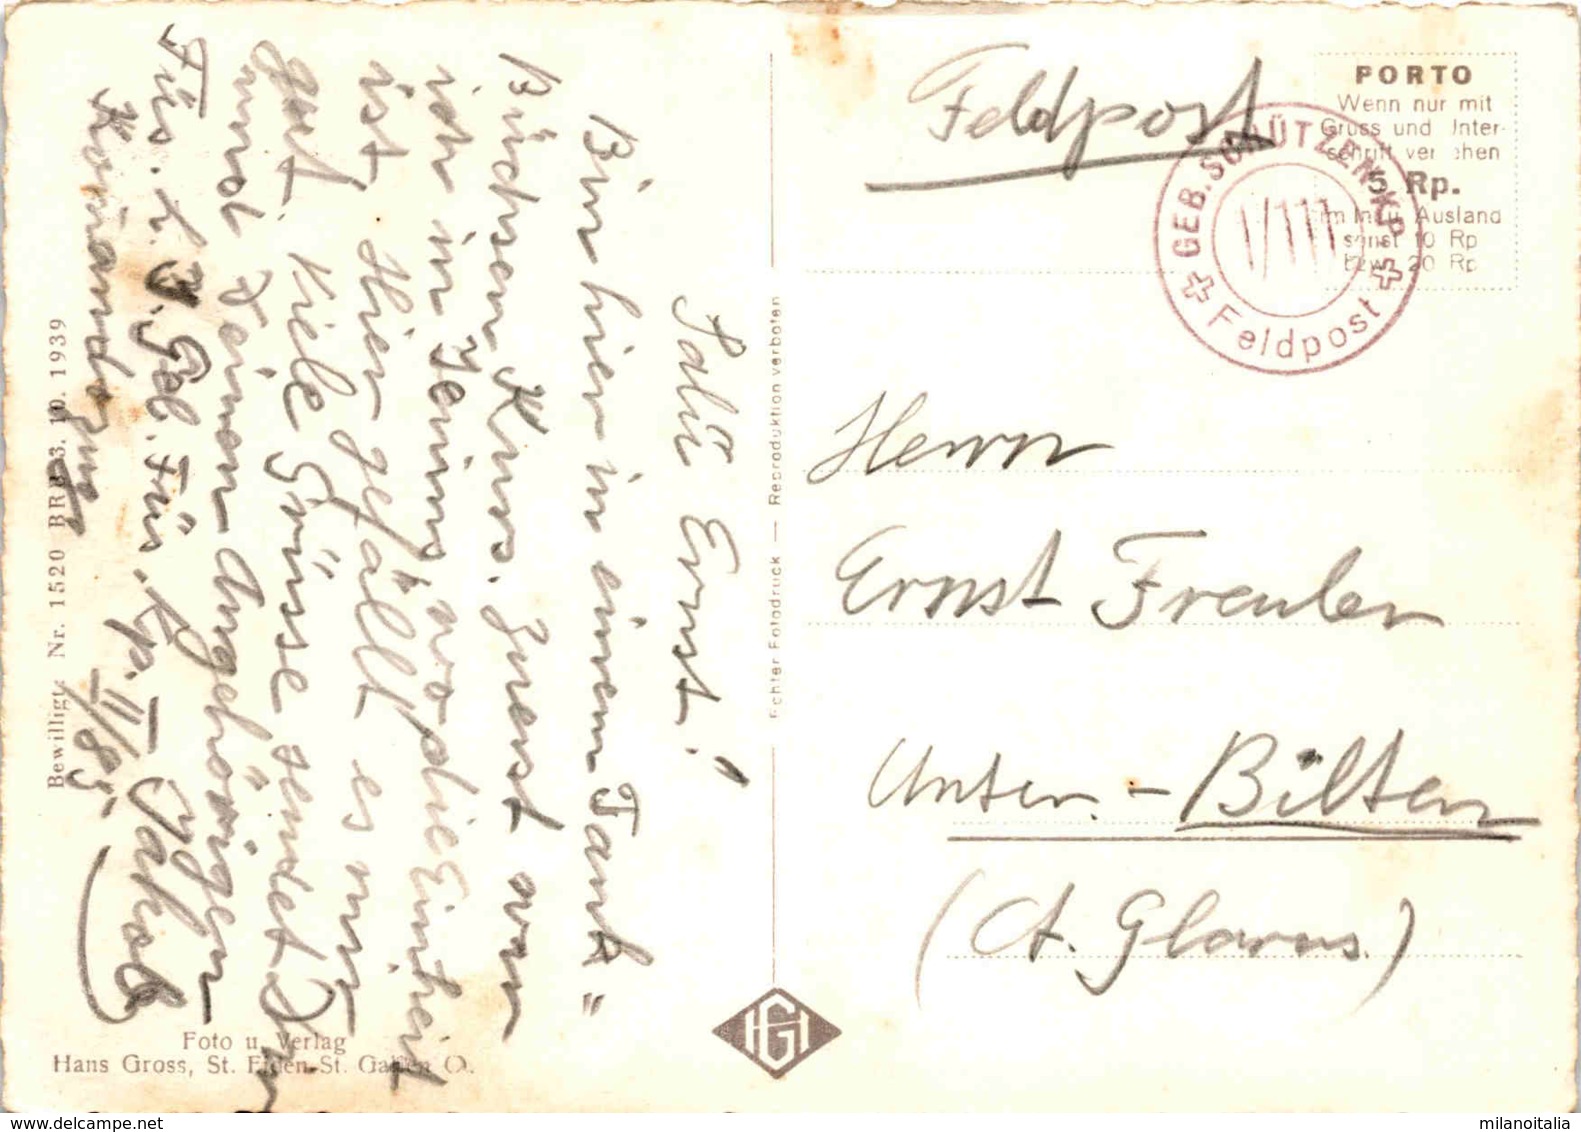 Salü Ernst!
Bin hier in einem Tank=
Büchsen Kurs. Zuerst war
ich in Jenins, wo die Einheit
ist. Hier gefällt es mir
gut. Viele Grüsse sendet Dir
und Deinen Angehörigen
Füs. L. J. Geb. Füs. Kp. II/85 Jakob
Bewilligt: Nr. 1520 BRB 3. 10. 1939
Foto u. Verlag
Hans Gross, St. Fiden-St. Gallen O.
Echter Fotodruck — Reproduktion verboten
HG
Feldpost
PORTO
Wenn nur mit
Gruss und Unter-
schrift versehen
5 Rp.
im Inl. u. Ausland
sonst 10 Rp
bzw. 20 Rp.
GEB. SCHÜTZEN KP
I/111
Feldpost
Herrn
Ernst Freuler
Unter-Bilten
(Ct. Glarus.)
www.delcampe.net
milanoitalia